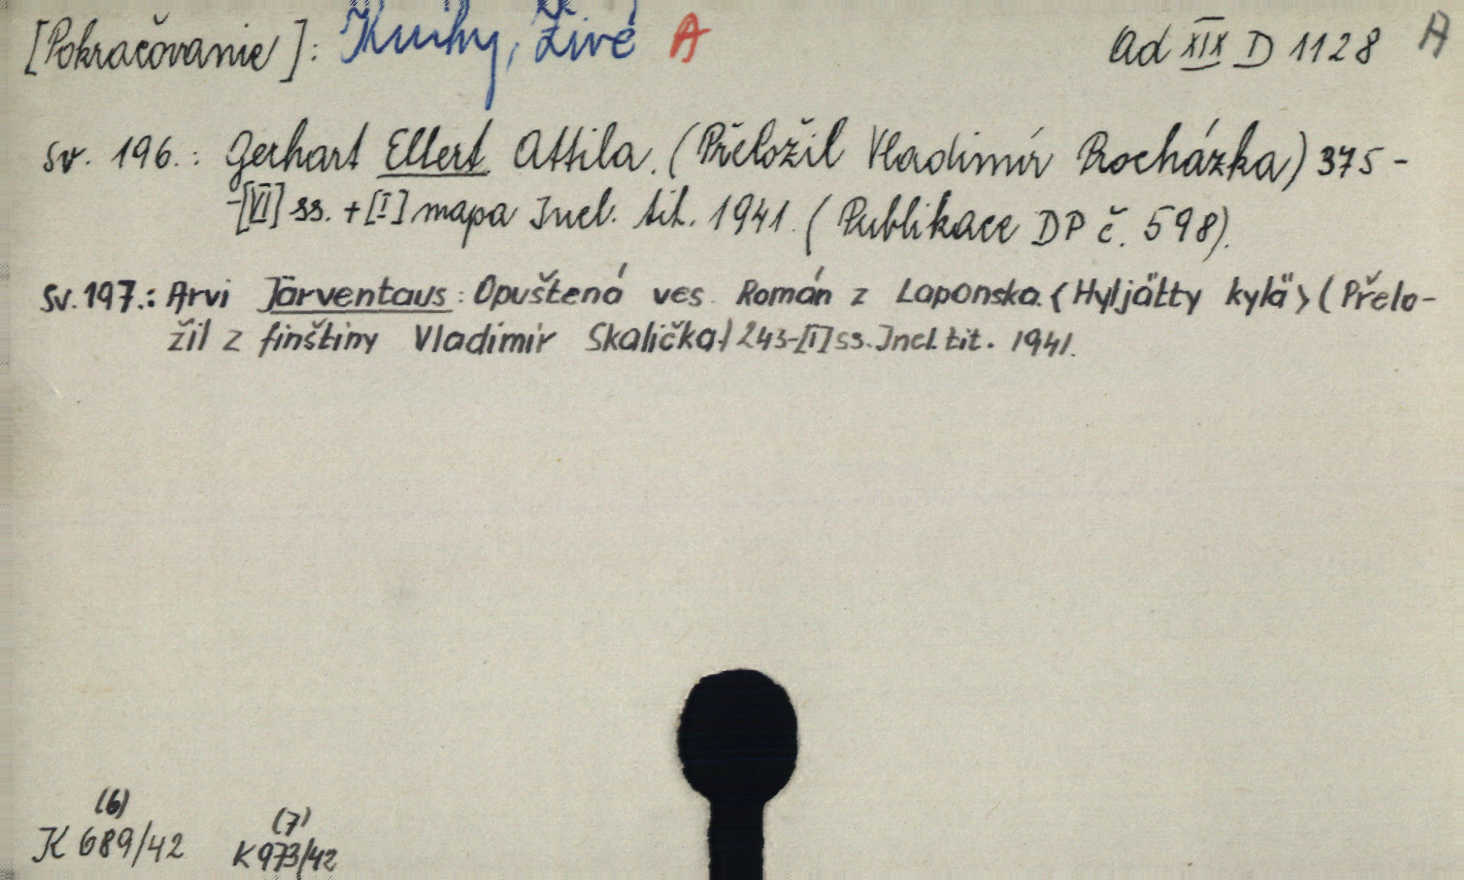 [Pokračovanie]: Knihy, Živé A Ad XIX D 1128 A
sv. 196.: Gerhart Ellert Attila. (Přeložil Vladimír Procházka) 375-
-[VI] ss. + [I] mapa Incl. tit. 1941. (Publikace DP č. 598).
Sv. 197.: Arvi Järventaus: Opuštená ves. Román z Laponska. <Hyljätty kylä> (Přelo-
žil z finštiny Vladimír Skalička) 243-[I] ss. Incl. tit. 1941.
(6) (7)
K 689/42 K 973/42